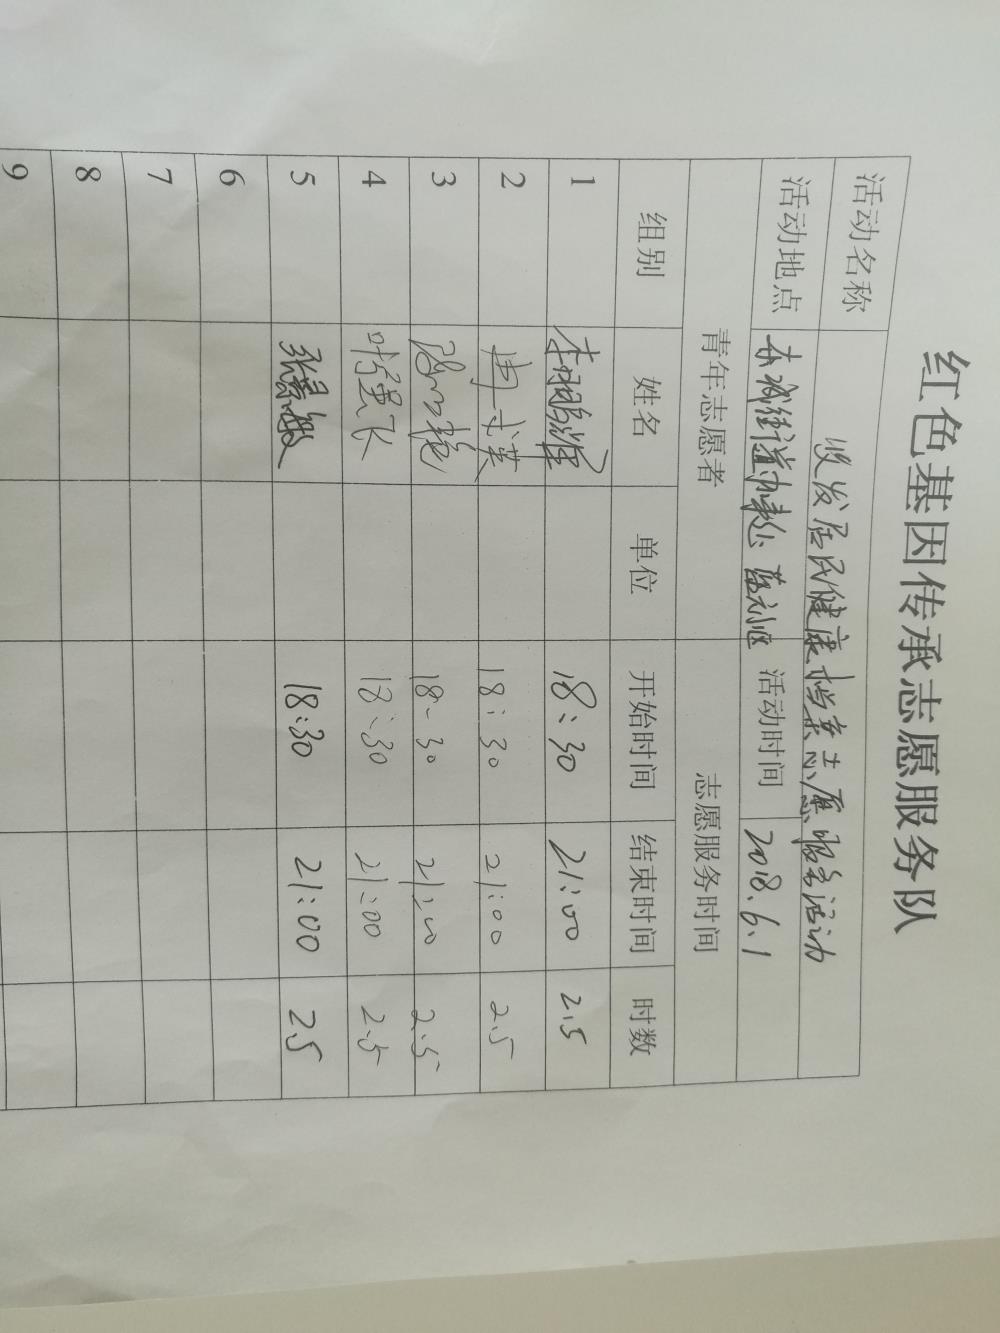 红色基因传承志愿服务队
活动名称 收发居民健康档案志愿服务活动
活动地点 街道办事处 活动时间 2018.6.1
青年志愿者 志愿服务时间
组别 姓名 单位 开始时间 结束时间 时数
1 18:30 21:00 2.5
2 18:30 21:00 2.5
3 18:30 21:00 2.5
4 18:30 21:00 2.5
5 张景敏 18:30 21:00 2.5
6
7
8
9